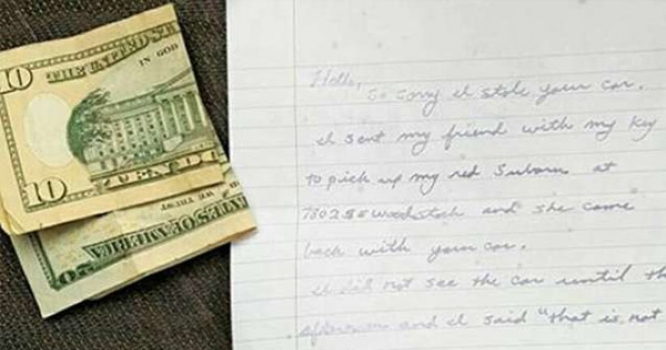 10
THE UNITED ST
IN GOD
10
TEN DO
WE TRUST
STATES OF AMERICA
Hello,
So sorry I stole your car.
I sent my friend with my key
to pick up my red Subaru at
7802 SE Woodstock and she came
back with your car.
I did not see the car until th
afternoon and I said "that is not